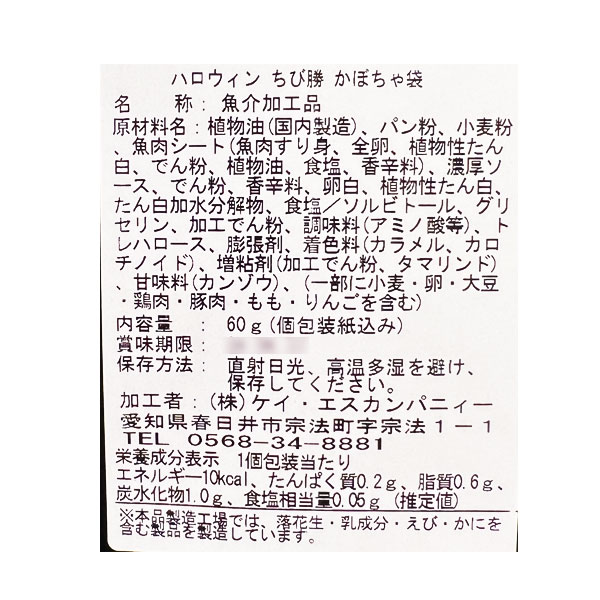 ハロウィン ちび勝 かぼちゃ袋
名　　称：魚介加工品
原材料名：植物油(国内製造)、パン粉、小麦粉
、魚肉シート(魚肉すり身、全卵、植物性たん
白、でん粉、植物油、食塩、香辛料)、濃厚ソ
ース、でん粉、香辛料、卵白、植物性たん白、
たん白加水分解物、食塩／ソルビトール、グリ
セリン、加工でん粉、調味料(アミノ酸等)、ト
レハロース、膨張剤、着色料(カラメル、カロ
チノイド)、増粘剤(加工でん粉、タマリンド)
、甘味料(カンゾウ)、(一部に小麦・卵・大豆
・鶏肉・豚肉・もも・りんごを含む)
内容量　：　60ｇ(個包装紙込み)
賞味期限：
保存方法：　直射日光、高温多湿を避け、
保存してください。
加工者：(株)ケイ・エスカンパニィー
愛知県春日井市宗法町字宗法１－１
TEL 0568-34-8881
栄養成分表示　1個包装当たり
エネルギー10kcal、たんぱく質0.2g、脂質0.6g、
炭水化物1.0g、食塩相当量0.05g (推定値)
※本品製造工場では、落花生・乳成分・えび・かにを
含む製品を製造しています。